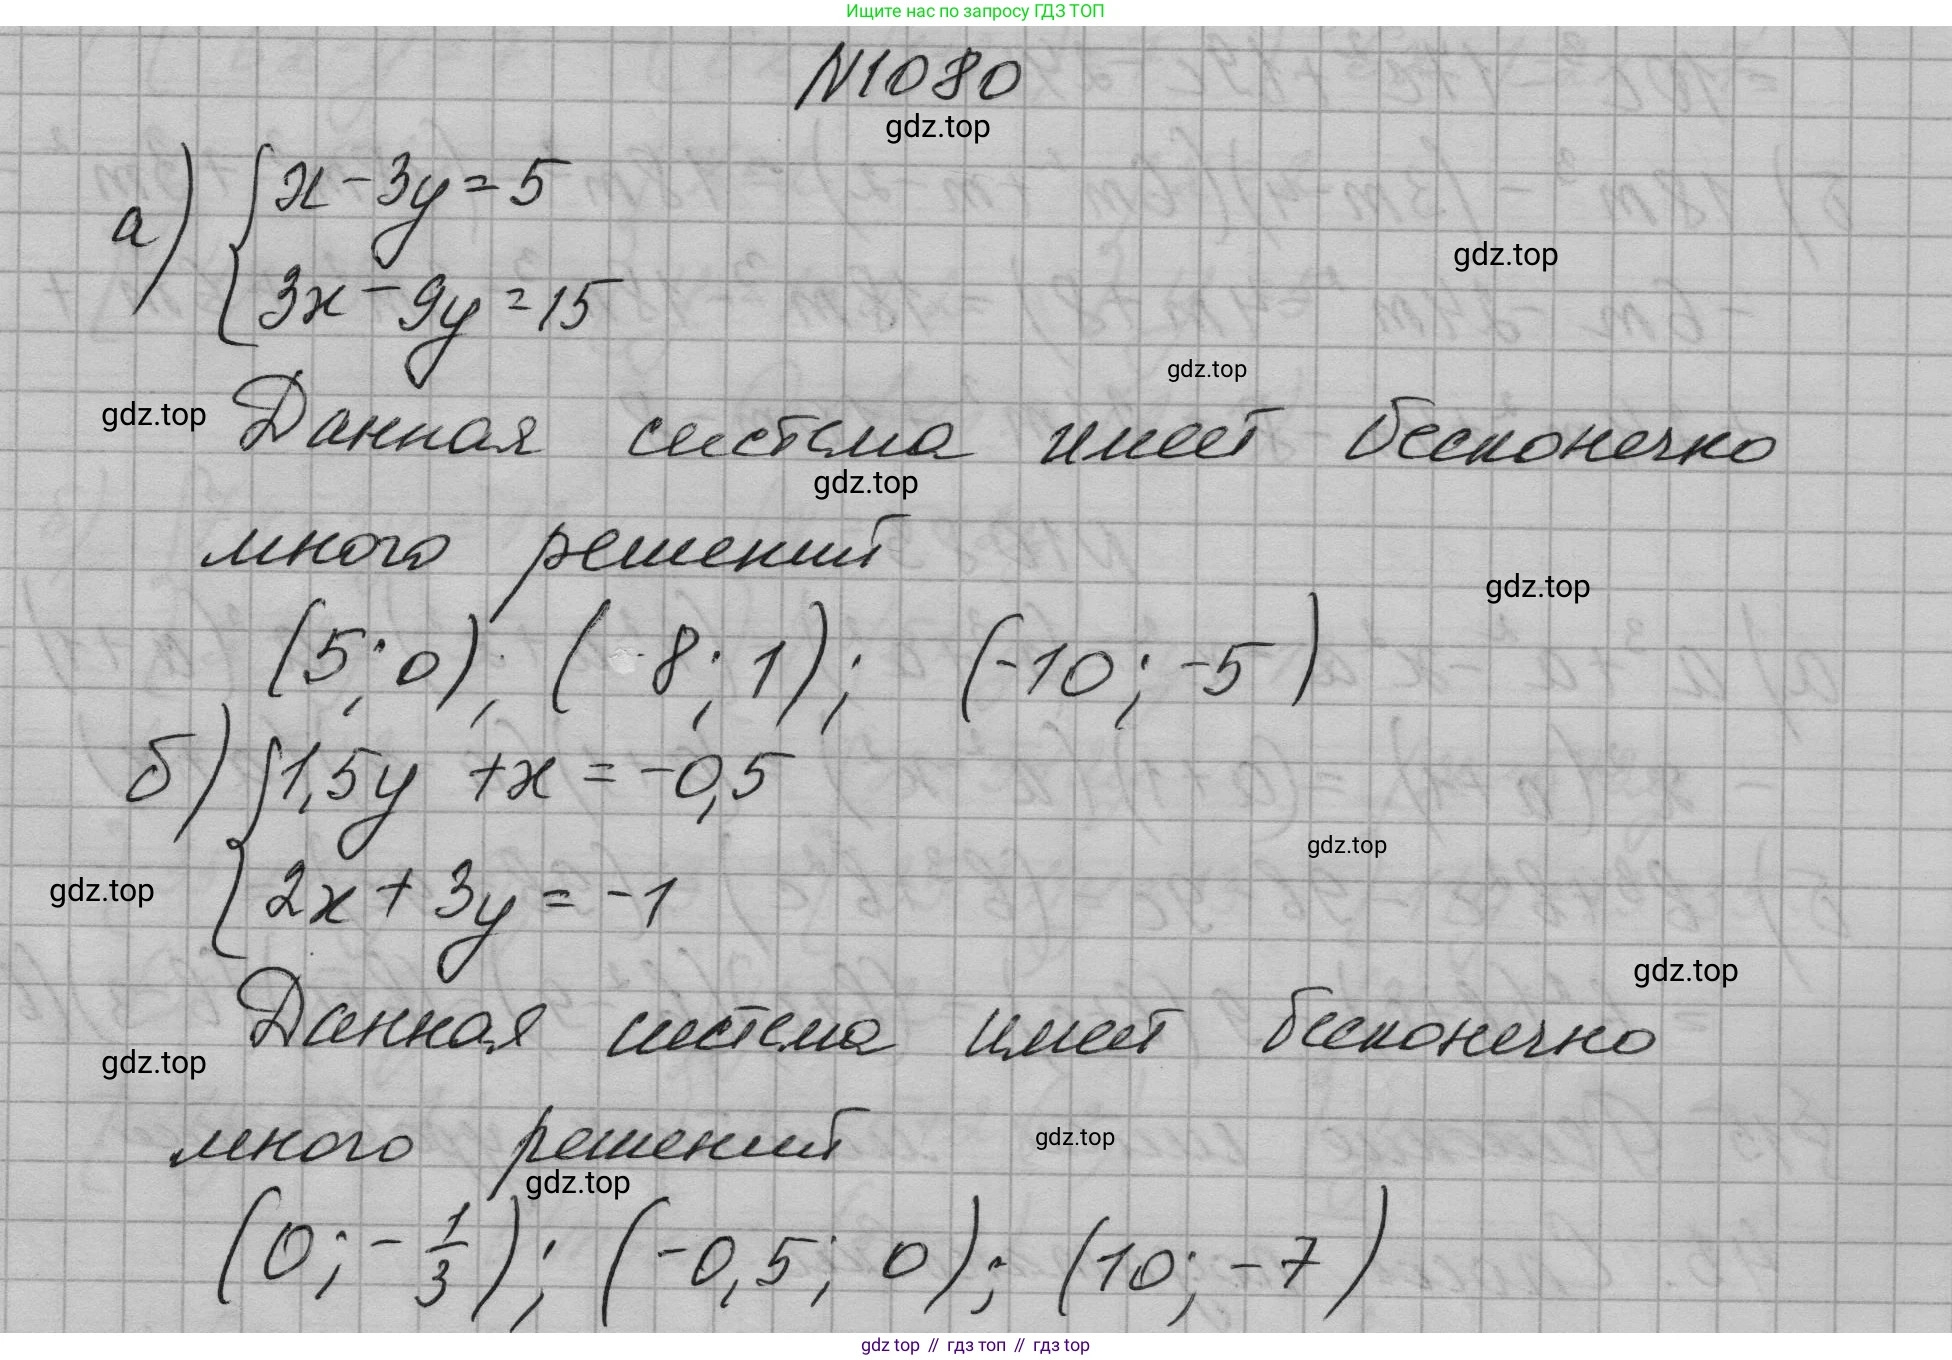 Ищите нас по запросу ГДЗ ТОП
N1080
gdz.top
а) { x - 3y = 5
3x - 9y = 15
gdz.top
gdz.top
gdz.top
Данная система имеет бесконечно
gdz.top
много решений
gdz.top
(5; 0); ( 8; 1); (-10; -5)
б) { 1,5y + x = -0,5
gdz.top
2x + 3y = -1
gdz.top
gdz.top
Данная система имеет бесконечно
gdz.top
много решений
gdz.top
gdz.top
(0; -1/3); (-0,5; 0); (10; -7)
gdz top // гдз топ // гдз top